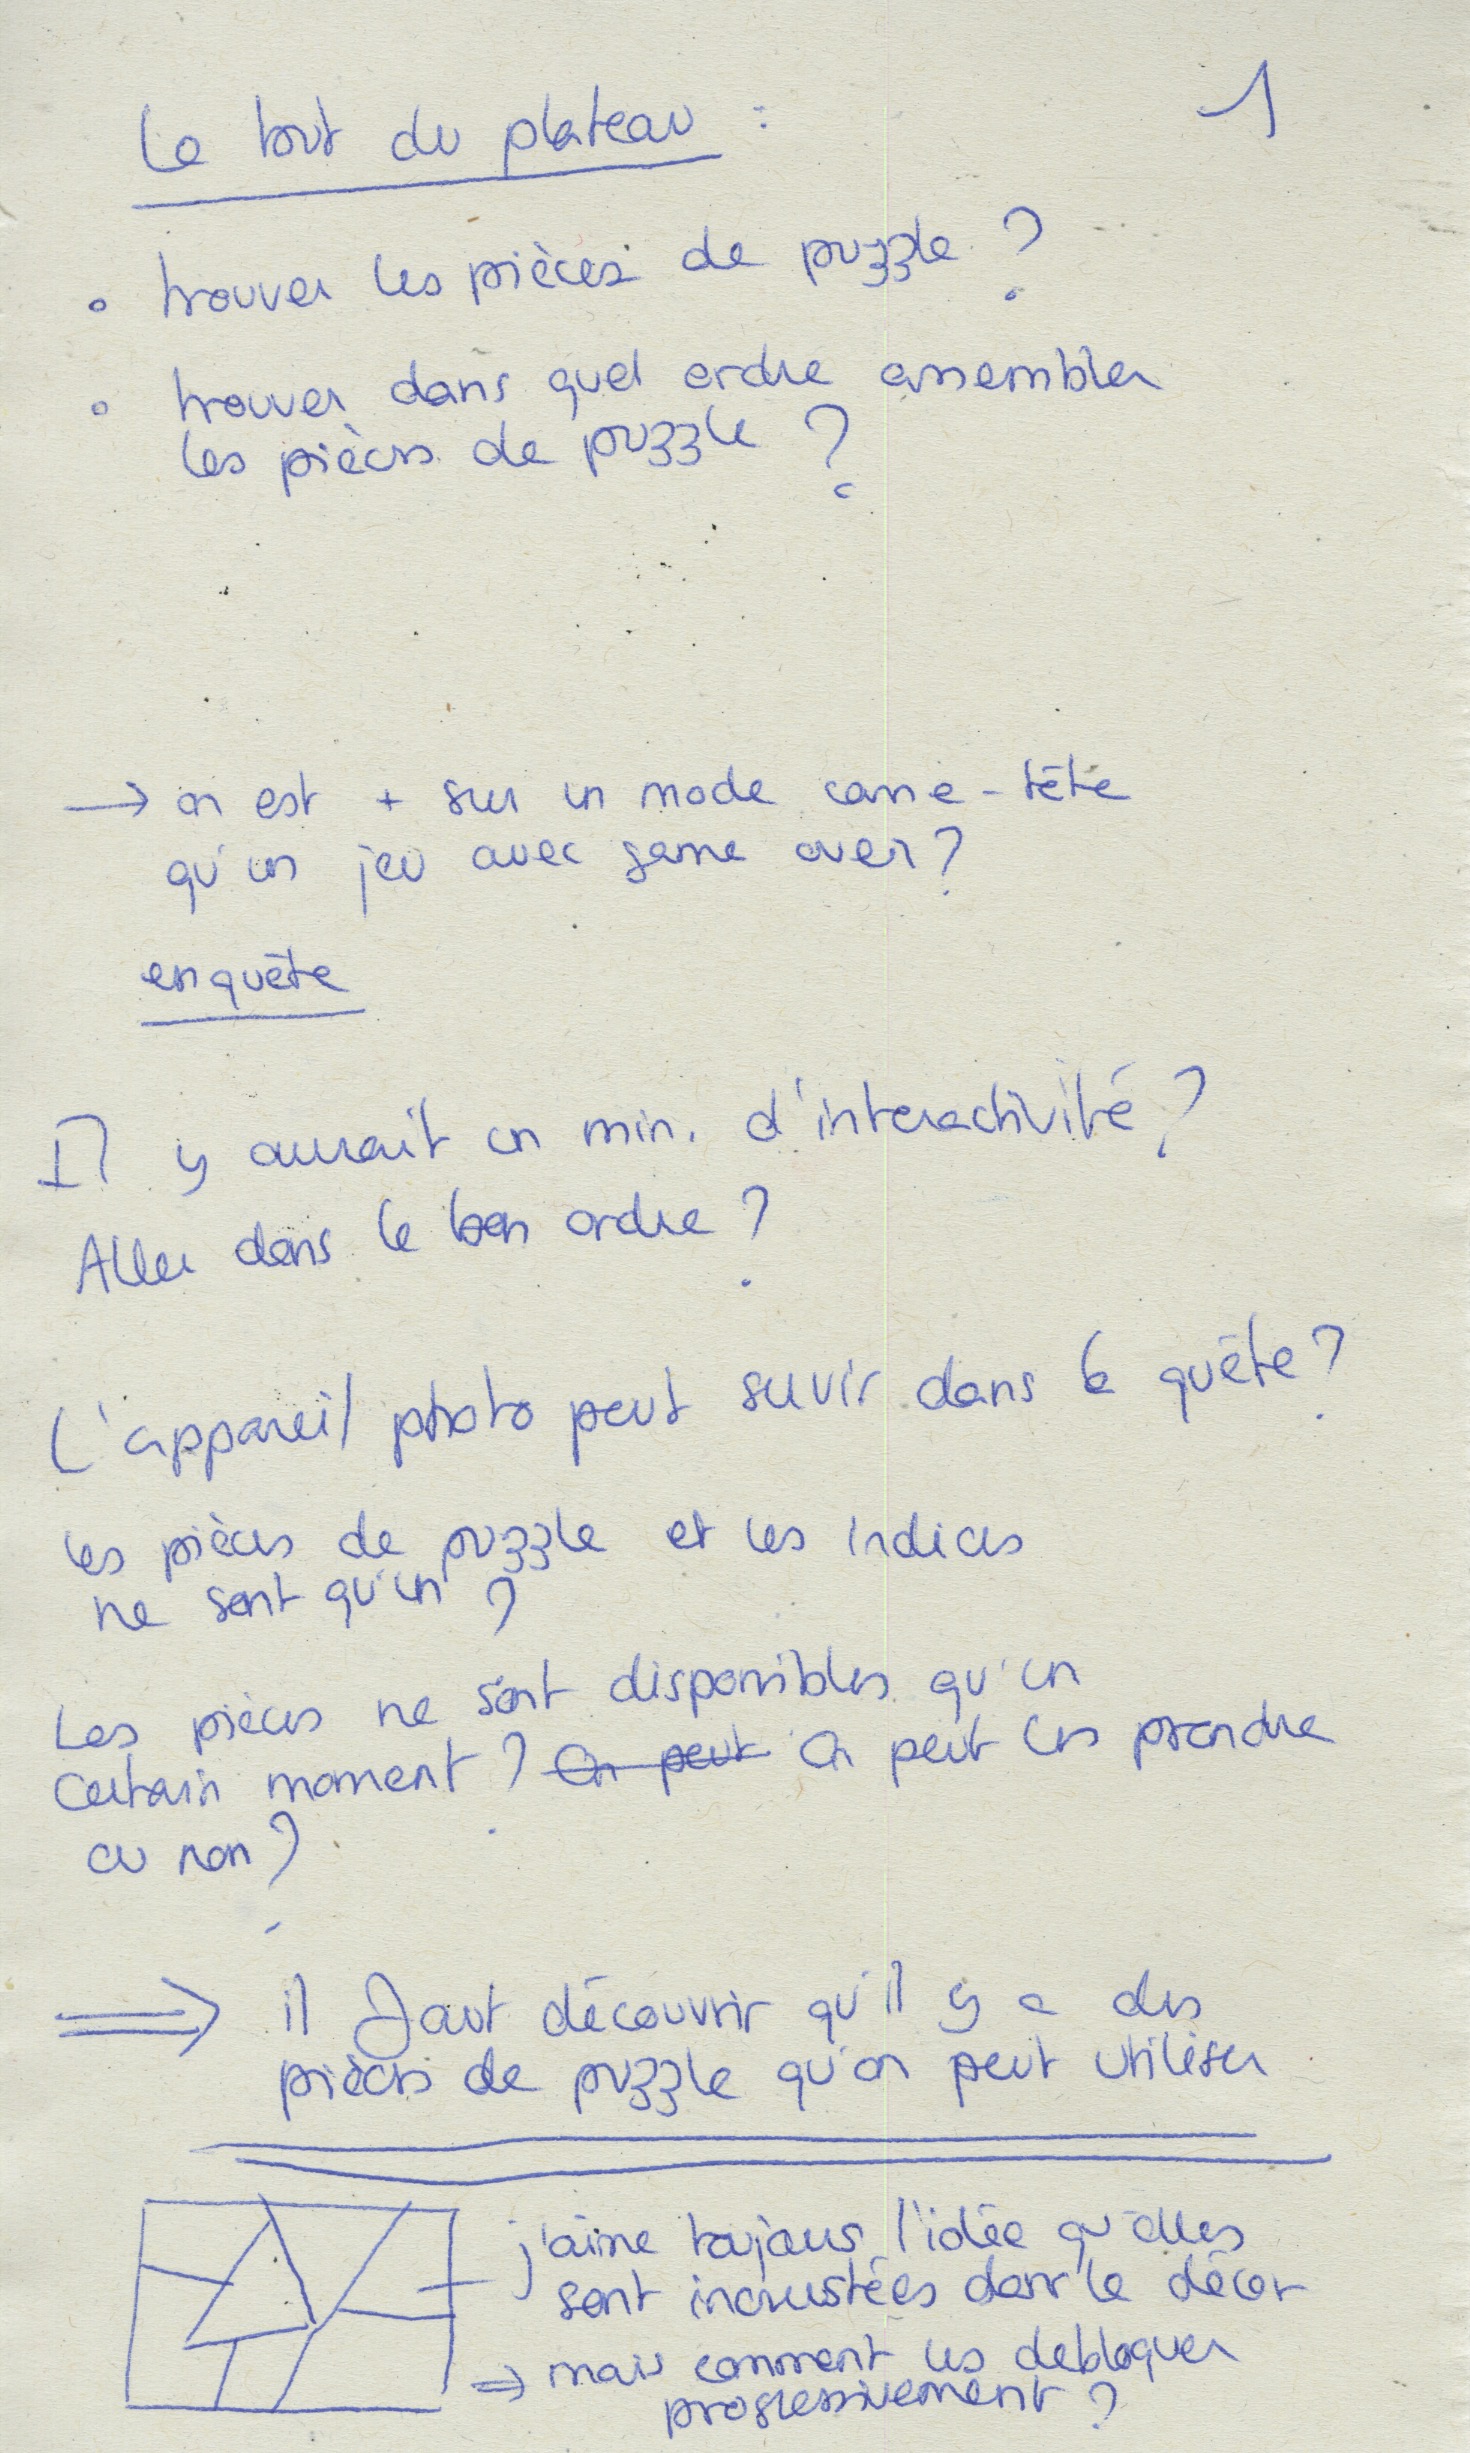 Le tout du plateau :
1
• trouver les pièces de puzzle ?
• trouver dans quel ordre assembler
les pièces de puzzle ?
→ on est + sur un mode casse-tête
qu'un jeu avec game over ?
enquête
Il y aurait un min. d'interactivité ?
Aller dans le bon ordre ?
L'appareil photo peut servir dans la quête ?
Les pièces de puzzle et les indices
ne sont qu'un ?
Les pièces ne sont disponibles qu'un
certain moment ? On peut On peut les prendre
ou non ?
⇒ il faut découvrir qu'il y a des
pièces de puzzle qu'on peut utiliser
j'aime toujours l'idée qu'elles
sont incrustées dans le décor
⇒ mais comment les debloquer
progressivement ?